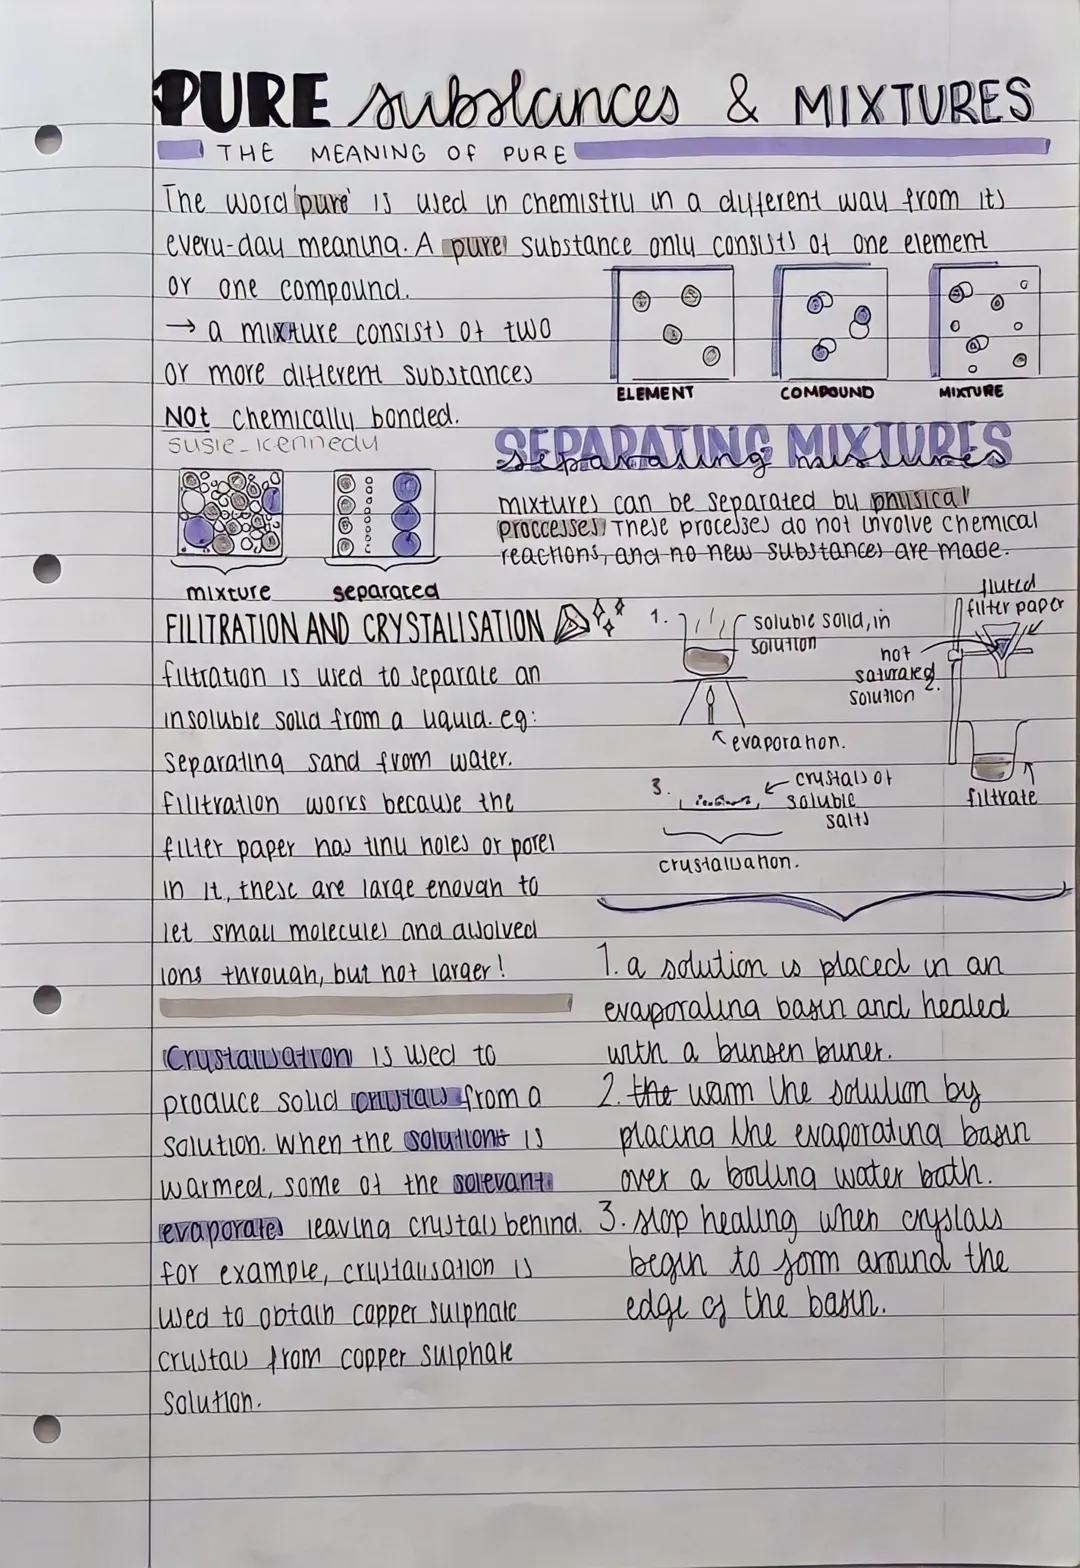 PURE substances & MIXTURES
THE MEANING OF PURE
The word 'pure' is used in chemistry in a different way from its
every-day meaning. A pure substance only consists of one element
or one compound.
→ a mixture consists of two
or more different substances
NOt chemically bonded.
ELEMENT
COMPOUND
MIXTURE
susie_kennedy
mixture
separated
SEPARATING MIXTURES
separating mixtures
mixtures can be separated by physical
proccesses. These processes do not involve chemical
reactions, and no new substances are made.
FILITRATION AND CRYSTALISATION
filtration is used to separate an
insoluble solid from a liquid. eg:
separating sand from water.
filitration works because the
filter paper has tiny holes or pores
in it, these are large enough to
let small molecules and dissolved
ions through, but not larger!
1.
soluble solid, in
solution
evaporation.
fluted
filter paper
not
saturated
solution
2.
filtrate
3.
crystals of
soluble
salts
crystalisation.
Crystalisation is used to
produce solid crystals from a
solution. When the solutions is
warmed, some of the solevant
evaporates leaving crystals behind.
for example, crystalisation is
used to obtain copper sulphate
crystals from copper sulphate
solution.
1. a solution is placed in an
evaporating basin and heated
with a bunsen buner.
2. the warm the solution by
placing the evaporating basin
over a boiling water bath.
3. stop heating when crystals
begin to form around the
edge of the basin.